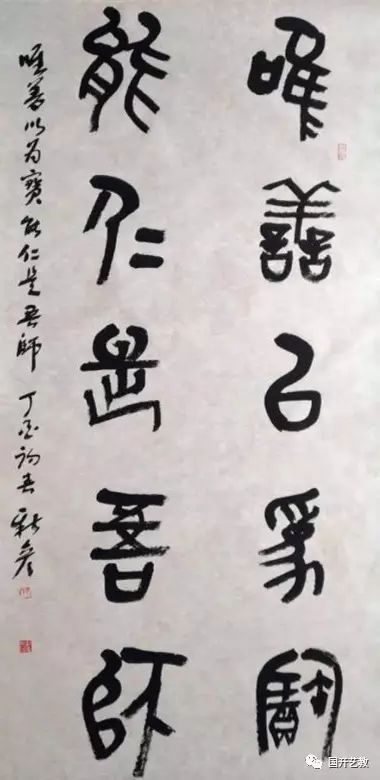 唯善以為寶
能仁是吾師
唯善以为寶能仁是吾師 丁酉初春
国开艺教